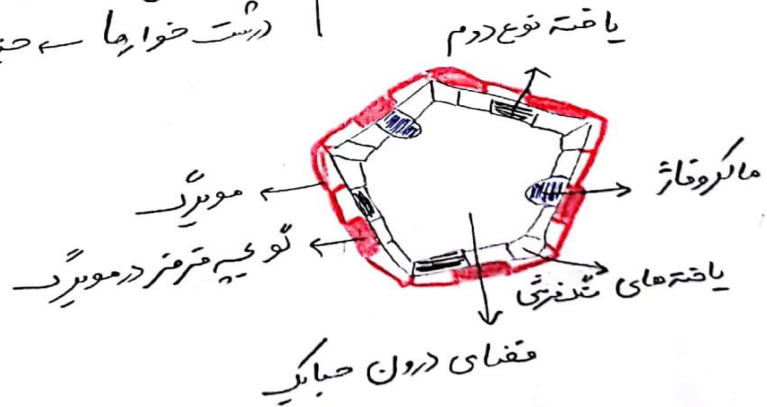 درشت خوارها ←
یاخته نوع دوم
ماکروفاژ
مویرگ
گویچه قرمز در مویرگ
یاخته‌های سنگفرشی
فضای درون حبابک